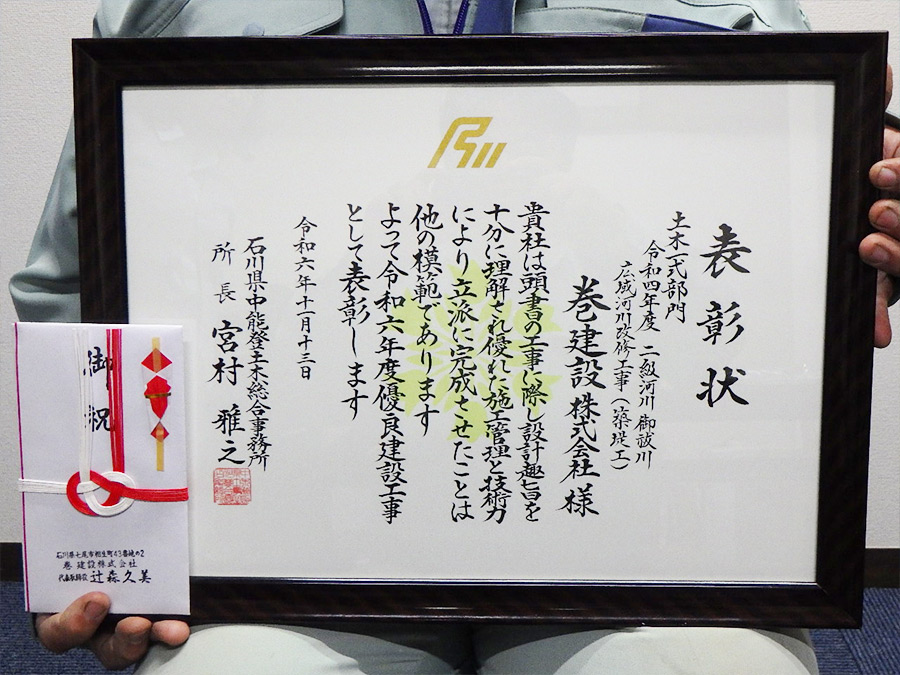 表彰状
土木一式部門
令和四年度 二級河川 御祓川
広域河川改修工事(築堤工)
巻建設株式会社様
貴社は頭書の工事に際し設計趣旨を
十分に理解され優れた施工管理と技術力
により立派に完成させたことは
他の模範であります
よって令和六年度優良建設工事
として表彰します
令和六年十一月十三日
石川県中能登土木総合事務所
所長 宮村雅之
御祝
石川県七尾市相生町43番地の2
巻建設株式会社
代表取締役 辻森久美